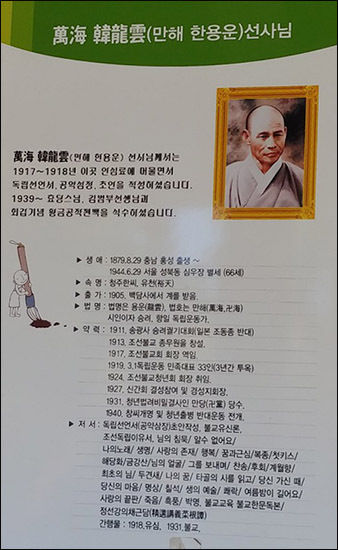 萬海 韓龍雲(만해 한용운)선사님
萬海 韓龍雲(만해 한용운) 선서님께서는
1917~1918년 이곳 안심료에 머물면서
독립선언서, 공약삼장, 초안을 작성하셨습니다.
1939~ 효당스님, 김범부선생님과
회갑기념 황금공적편백을 식수하셨습니다.
▶ 생 애 : 1879.8.29 충남 홍성 출생 ~
1944.6.29 서울 성북동 심우장 별세 (66세)
▶ 속 명 : 청주한씨, 유천(裕天)
▶ 출 가 : 1905, 백담사에서 계를 받음.
▶ 법 명 : 법명은 용운(龍雲), 법호는 만해(萬海,卍海)
시인이자 승려, 항일 독립운동가,
▶ 약 력 : 1911, 송광사 승려궐기대회(일본 조동종 반대)
1913, 조선불교 종무원을 창설,
1917, 조선불교회 회장 역임,
1919, 3.1독립운동 민족대표 33인(3년간 투옥)
1924, 조선불교청년회 회장 취임,
1927, 신간회 결성참여 및 경성지회장,
1931, 청년법려비밀결사인 만당(卍黨) 당수,
1940, 창씨개명 및 청년출병 반대운동 전개,
▶ 저 서 : 독립선언서(공약삼장)초안작성, 불교유신론,
조선독립이유서, 님의 침묵/ 알수 없어요/
나의노래/ 생명/ 사랑의 존재/ 행복/ 꿈과근심/복종/첫키스/
해당화/금강산/님의 얼굴/ 그를 보내며/ 찬송/후회/계월향/
최초의 님/ 두견새/ 나의 꿈/ 타골의 시를 읽고/ 당신 가신 때/
당신의 마음/ 명상/ 칠석/ 생의 예술/ 쾌락/ 여름밤이 길어요/
사랑의 끝판/ 죽음/ 흑풍/ 박명, 불교교육 불교한문독본/
정선강의채근담(精選講義菜根譚)
간행물 : 1918,유심, 1931,불교,